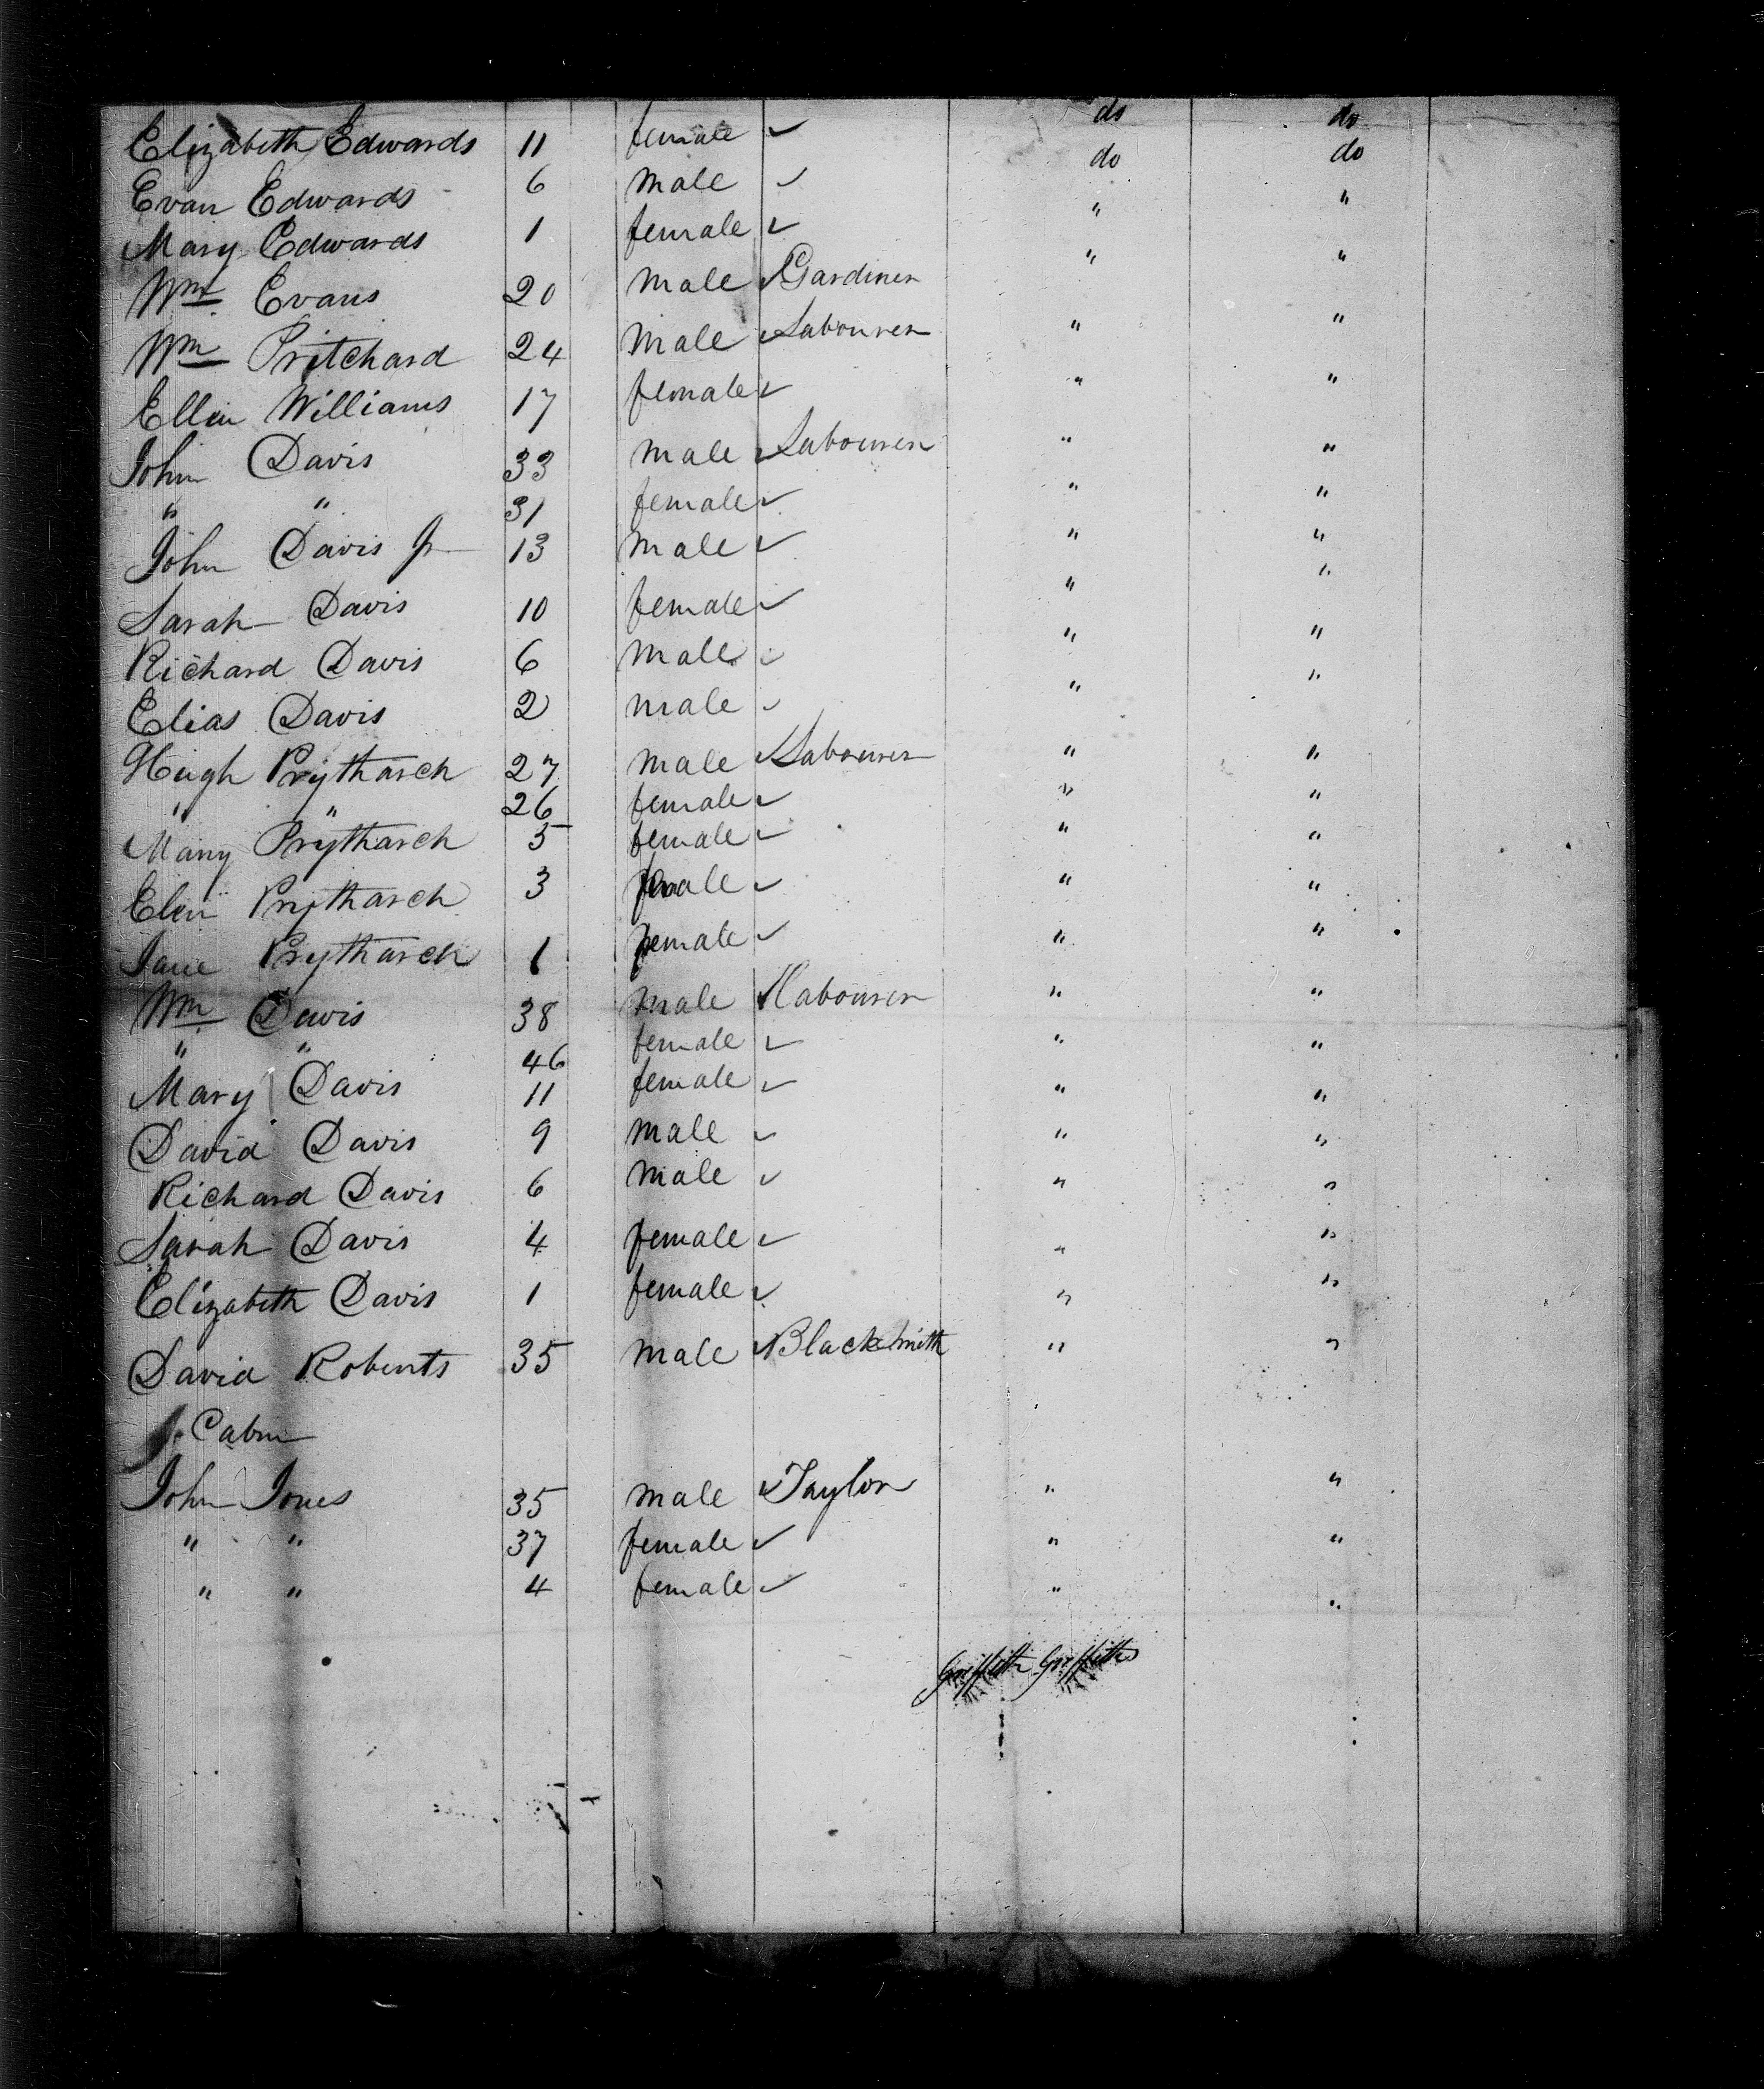 Elizabeth Edwards 11 female ✓ do do
Evan Edwards 6 male ✓ do do
Mary Edwards 1 female ✓ " "
Wm Evans 20 male ✓ Gardiner " "
Wm Pritchard 24 male ✓ Labourer " "
Ellin Williams 17 female ✓ " "
John Davis 33 male ✓ Labourer " "
" " 31 female ✓ " "
John Davis Jr 13 male ✓ " "
Sarah Davis 10 female ✓ " "
Richard Davis 6 male ✓ " "
Elias Davis 2 male ✓ " "
Hugh Prytharch 27 male ✓ Labourer " "
" " 26 female ✓ " "
Mary Prytharch 5 female ✓ " "
Elin Prytharch 3 female ✓ " "
Jane Prytharch 1 female ✓ " "
Wm Davis 38 male ✓ Labourer " "
" " 46 female ✓ " "
Mary Davis 11 female ✓ " "
David Davis 9 male ✓ " "
Richard Davis 6 male ✓ " "
Sarah Davis 4 female ✓ " "
Elizabeth Davis 1 female ✓ " "
David Roberts 35 male ✓ Blacksmith " "
Cabin
John Jones 35 male ✓ Taylor " "
" " 37 female ✓ " "
" " 4 female ✓ " "
Griffith Griffiths